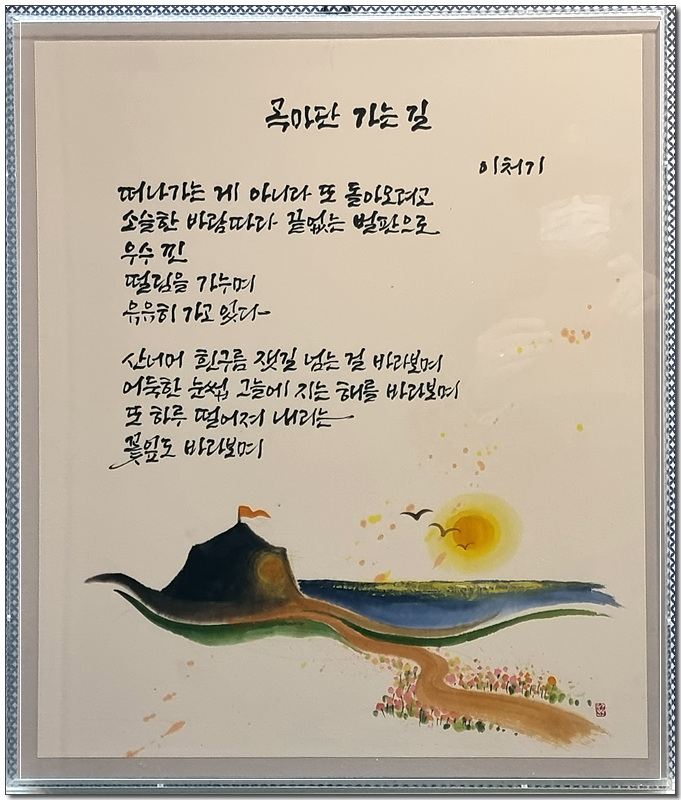 곡마단 가는 길
이처기
떠나가는 게 아니라 또 돌아오려고
소슬한 바람따라 끝없는 벌판으로
우수 띤
떨림을 가누며
유유히 가고 있다
산너머 흰구름 잿길 넘는 걸 바라보며
어둑한 눈썹 그늘에 지는 해를 바라보며
또 하루 떨어져 내리는
꽃잎도 바라보며